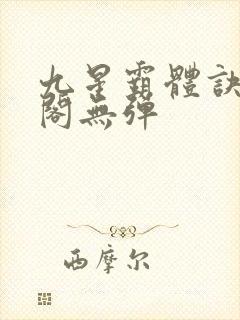 九星霸體訣
閣無彈
西摩尔